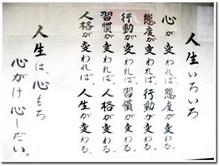 人生いろいろ
心が変われば、態度が変わる。
態度が変われば、行動が変わる。
行動が変われば、習慣が変わる。
習慣が変われば、人格が変わる。
人格が変われば、人生が変わる。
人生は、心もち
心がけしだい。